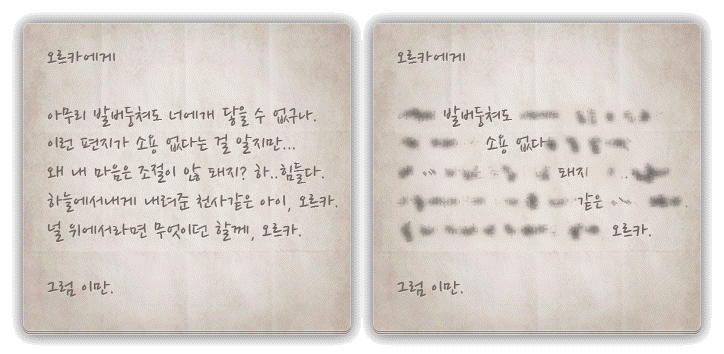 오르카에게
아무리 발버둥쳐도 너에게 닿을 수 없구나.
이런 편지가 소용 없다는 걸 알지만...
왜 내 마음은 조절이 않 돼지? 하..힘들다.
하늘에서내게 내려준 천사같은 아이, 오르카.
널 위에서라면 무엇이던 할께, 오르카.
그럼 이만.
오르카에게
발버둥쳐도
소용 없다
돼지
같은
오르카.
그럼 이만.